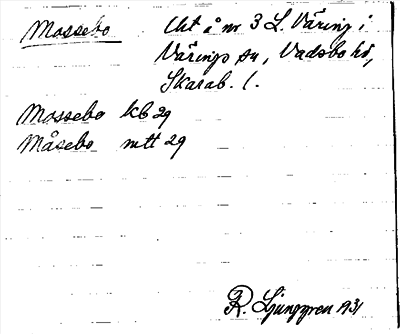 Mossebo Ut å nr 3 L. Väring i
Värings sn, Vadsbo hd,
Skarab. l.
Mossebo kb 29
Måsebo mtt 29
R. Ljunggren 1931